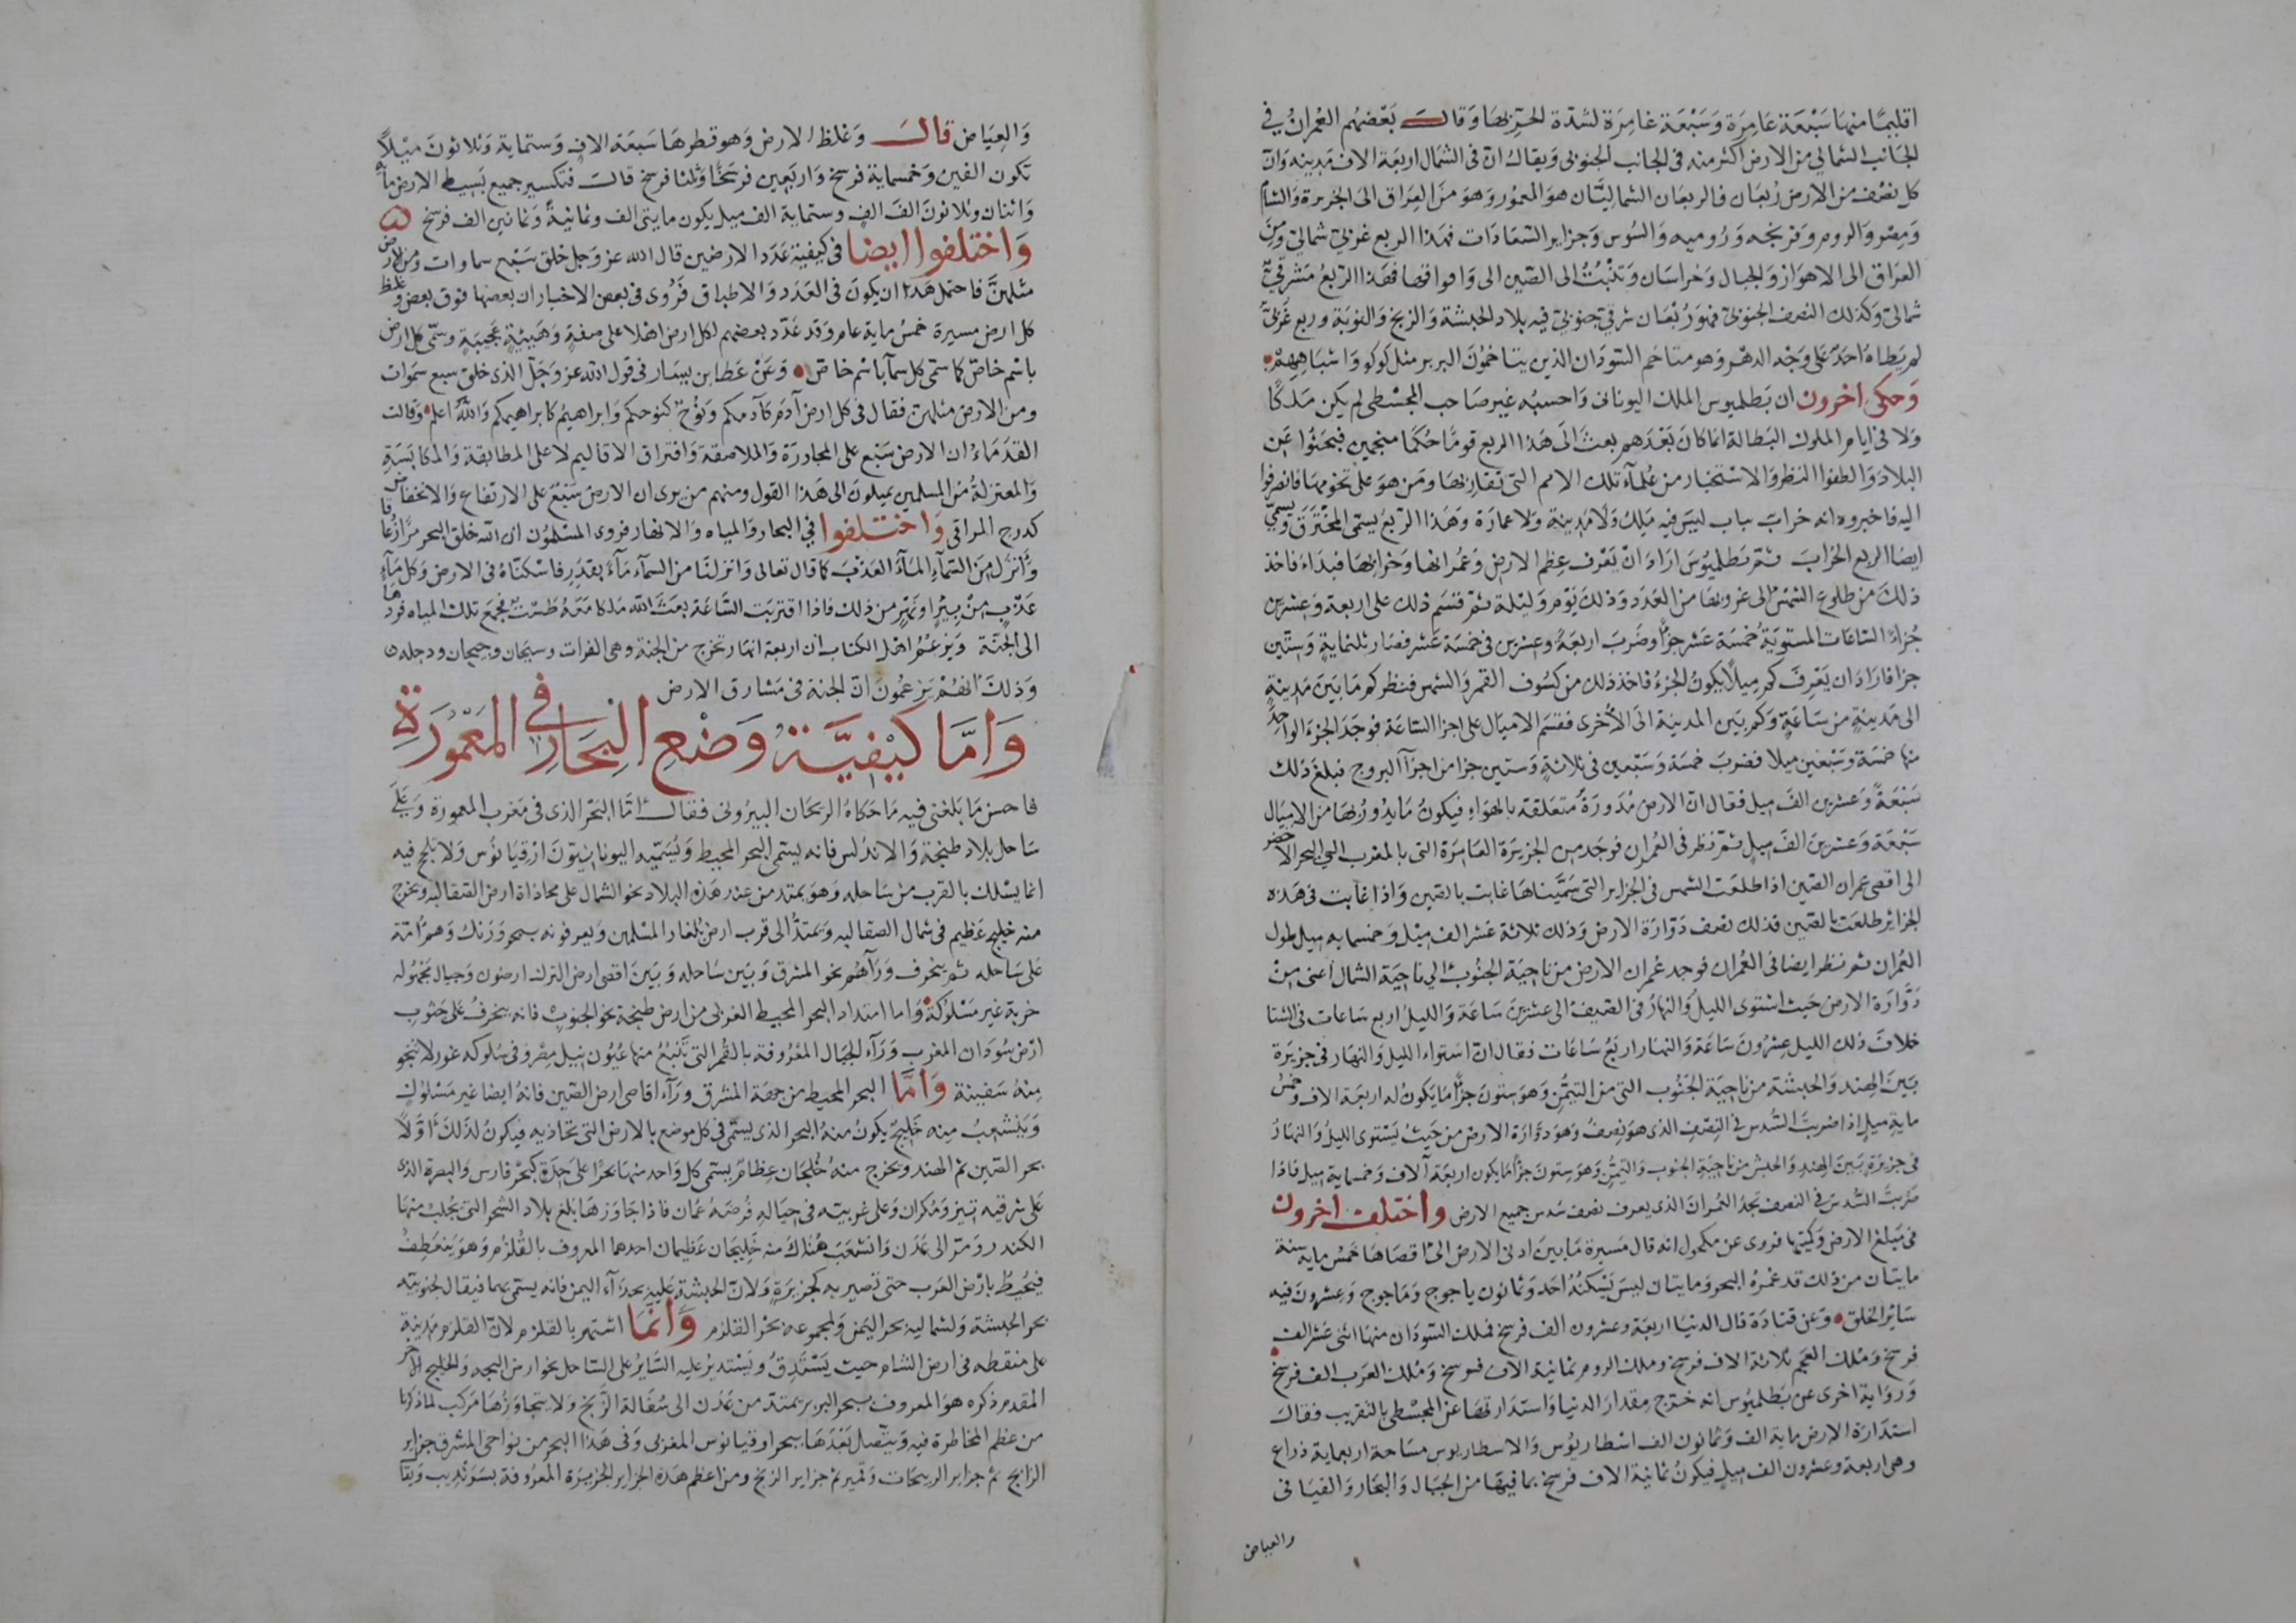 اقليمًا منها سَبْعَة عَامِرَة وَسَبْعَة غامِرَة لشدّة الحرّ بها وَقالــ بَعْضهُم العُمرانُ في
الجَانب الشمالي من الارض اكثر منه في الجانب الجنوبي وَيقال انّ في الشمال اربَعَة الاف مَدِينه وَانّ
كل نصْف من الارض رُبعَان فالربعَان الشماليّان هو المعمُور وَهوَ منَ العِراق الى الجزيرة وَالشام
وَمِصْر وَالروم وَفرنجه وَرُوميه وَالسُوس وَجزاير السّعَادَات فهذا الربع غربيّ شماليّ وَمن
العرَاق الى الاهوَاز وَالجبال وَخراسَان وَتنْبُتُ الى الصّين الى وَاقواقها فهَذا الرّبعُ مَشرقيٌّ
شماليّ وَكذلك النصف الجنوبيّ فهوَ رُبْعَان شرقيّ جنوبيّ فيه بلاد الحبشة وَالزنج وَالنوبَة وربع غَربيّ
لم يَطاهُ احَدٌ عَلى وَجْه الدهر وَهو متاخم السّودَان الذين يتاخمُون البربر مثل كوكو وَاشباهِهِمْ
وَحكى اخرون ان بَطلميوس الملك اليونانى وَاحسبُه غير صَاحب المجسْطى لم يكن مَلِكًا
وَلا في ايام الملوك البَطالة انما كانَ بَعْدَهم بعثَ الى هَذا الربع قومًا حُكما منجمين فبحَثوُا عَن
البلاد وَالطفوا النظر وَالاسْتخبار من عُلمآء تلك الامم التى تقاربها ومَن هوَ على تخومهَا فانصرفوا
اليه فاخبروه انه خرابٌ يباب ليسَ فيه مَلِك وَلا مَدينة وَلا عمارَة وَهَذا الرّبعُ يسمّى المحْتَرق وَيسمّي
ايضا الربع الخرابَ ثمّ بَطلميُوسَ ارَادَ انْ يَعْرف عِظم الارض وَعُمرانها وَخرابهَا فبدَاء فاخذ
ذلكَ من طلوع الشمسْ الى غروبها من العدَد وَذلك يَوْم وَليْلة ثمّ قسَم ذلك على اربعة وَعشرين
جُزاءً السّاعَات المستويَةُ خمسَة عَشر جزاً وضَربَ اربَعَةً وعشرين في خمسَة عَشر فصَار ثلثمايةٍ وَستّين
جزا فارَادَ ان يَعْرفَ كم مِيلاً يكونُ الجزءُ فاخذ ذلك من كسُوف القمر وَالشمس فنظر كم مَا بَينَ مَدينةٍ
الى مَدينةٍ من سَاعَةٍ وَكم بَين المدينة الى الأخرى فقسَم الاميَال على اجزا السّاعَة فوجَدَ الجزءَ الواحِدَ
منها خمسَة وَسَبْعين ميلا فضربَ خمسَة وَسَبْعين في ثلاثمايةٍ وَستين جزا من اجزآ البروج فبلغ ذلك
سَبْعَةً وَعشرين الفَ ميل فقال انّ الارضَ مُدَورَةٌ متعَلقة بالهوَاءِ فيكونُ مَايَدُورُ بهَا من الاميَال
سَبْعَة وَعشرين الفَ مِيل ثمّ نظر في العُمران فوجَد من الجزيرَة العَامرَة التى بالمغرب الى البحر الاخضر
الى اقصى عمران الصّين اذا طلعَت الشمس في الجزاير التى سَمَّيناها غابت بالصّين وَاذا غابت في هَذه
الجزائر طلعَت بالصّين فذلك نصف دَوّارَة الارض وَذلك ثلاثة عَشر الف مِيْل وَخمسمايه ميل طول
العُمران ثم نظر ايضا فى العُمران فوجد عُمران الارض من ناحيَة الجنُوب الى ناحِيَة الشمال اعنى مِنْ
دَوَّارَة الارض حَيث اسْتوى الليلَ وَالنهارُ في الصّيف الى عشرينَ سَاعَة وَالليلُ اربع سَاعات في الشتا
خلافَ ذلك الليل عِشرُونَ سَاعَة وَالنهار اربَعُ سَاعَات فقال انّ استواء الليل وَالنهار في جزيرَة
بَينَ الهِند وَالحبشة من ناحِيَة الجَنُوب التى من التيمُّن وَهوَ ستونَ جزًا مَا يَكونُ له اربعَة الاف وَخمسُ
مايةِ ميلٍ اذا ضربتَ السُّدس في النِصْفِ الذى هوَ نِصفُ وَهوَ دَوّارَة الارض من حَيثُ يَسْتوى الليلُ وَالنهارُ
فى جزيرَةٍ بَينَ الهِندِ وَالحبش من ناحِيَةِ الجنوب وَالتيمُّن وَهوَ ستونَ جزًا مَا يكون اربعَة آلاف وَخمسمايةِ ميل فاذا
ضَربتَ السُّدسَ في النصف نجدُ العُمرانَ الذى يعرف نصف سُدس جميع الارض وَاختلف اخرون
فى مَبلغ الارض وَكميّتِها فروى عن مكحول انه قال مَسِيرة مَا بينَ ادنى الارض الى اقصَاهَا خمسُ مايه سنة
مايتان من ذلك قد غمرهُ البحر وَمايتان ليسَ يَسْكنُهُ احَد وَثمانون ياجوج وَمَاجوج وَعشرونَ فيه
سَائر الخلق وَعن قتادَة قال الدنيا اربعَة وعشرون الف فرسخ فملك السّودَان منهَا اثنى عَشر الف
فرسخ وَمُلك العَجم ثلاثة الاف فرسخ وملك الروم ثمانية الاف فرسخ وَمُلك العَرَب الف فرسخ
وَروَاية اخرى عن بَطلميُوس انه خرّج مِقدارَ الدنيا وَاستدَارتها عن المجسْطى بالتقريب فقال
استدَارَة الارض ماية الف وَثمانون الف اسْطاريُوس وَالاسطاريوس مسَاحة اربعماية ذراع
وهى اربعة وعشرون الف ميلٍ فيكونُ ثمانية الاف فرسخ بما فيهَا من الجبَال وَالبحَار وَالفيَافى
والغياض
وَالغِيَاض قالــ وَغلظ الارض وَهو قطرها سَبعَة الافِ وَستماية وَثلاثونَ مِيْلاً
تكون الفين وَخمسماية فرسخ وَاربَعين فرسَخًا وَثلثا فرسخ قالت فتكسير جميع بَسِيط الارض مأة
وَاثنان وَثلاثونَ الفَ الفٍ وستماية الف ميل يكون مايتى الف وثمانيةً وَثمانين الف فرسخ
وَاختلفوا ايضا في كيفية عَدَد الارضين قال الله عز وَجل خلق سَبْع سماوات ومن الارض
مثلهنَّ فاحتمل هَذا ان يكونَ في العَدَد وَالاطباق فرُوى في بعض الاخبار ان بعضها فوق بعض وَغلظ
كل ارض مسيرة خمسُ ماية عام وَقد عَدّد بعضهم لكل ارض اهْلا على صفةٍ وَهَيئةٍ عجيبَةٍ وسَمّى كل ارض
باسْم خاصّ كما سمّى كل سمآ باسْم خاصّ وَعَنْ عَطا بن يسَار في قول الله عز وَجَلّ الذى خلق سبع سَموات
ومن الارض مثلهن فقال في كل ارض آدَم كآدمكم وَنوُحٌ كنوحكم وَابراهيم كابراهيمكم وَاللهُ اعلم وَقالت
القدَمَاءُ ان الارض سَبْع على المجاورَة وَالملاصقة وَافتراق الاقاليم لا على المطابقة وَالمكابَسَةِ
وَالمعتزلةُ منَ المسلمين يميلونَ الى هَذا القول ومنهم من يرى ان الارض سَبْعٌ على الارتفاع وَالانخفاض
كدرج المراقى وَاختــلفوا في البحار وَالمياه وَالانهار فروى المسْلمُون ان الله خلق البحر مرًّا زُعاقا
وَأَنزلَ مِنَ السّمآءِ المآءَ العَذبَ كما قال تعالى وَانزلنَا من السمآء مَآءً بقدَرٍ فاسْكنّاهُ فى الارض وَكل مَآءٍ
عَذبٍ مِنْ بيرٍ اونهرٍ من ذلك فاذا اقتربَت السَّاعَة بعَثَ الله مَلكا مَعَهُ طَسْت فجمعَ تلك المياه فردّها
الى الجنّة وَيَزعمُ اهْل الكتاب ان اربعة انهار تخرج من الجنة وهى الفرات وسيحان وجيحان ودجله
وَذلكَ انهُمْ يَزعمُونَ انّ الجنة فى مَشارق الارض
وَامَّا كيْفيَّة وَضْعِ البِحَارِ في المَعْمُورَةِ
فاحسن مَا بَلغنى فيه مَا حَكاهُ الريحَان البيرُونى فقالــ امَّا البَحر الذى فى مَغرب المعمورة وَعَلَى
سَاحل بلاد طنجَة وَالاندلس فانه يسَمّى البحر المحيط وَيُسَمّيه اليونانيّونَ ازقيَانوُس وَلا يلجّ فيه
انما يسْلك بالقرب من سَاحله وَهوَ يمتد من عند هَذه البلاد نحو الشمال على محاذاة ارض الصّقالبه ويخرج
منه خليج عَظيم في شمال الصقالبه وَيمتدُّ الى قرب ارض بُلغار المسْلمين وَيعرفونه ببحر وَرَنك وَهم امّة
عَلى سَاحله ثم ينحرف وَرَآهُم نحو المشرق وَبَين سَاحله وَبَينَ اقصى ارض الترك ارضون وَجبال مَجْهُوله
خربة غير مَسْلوُكة وَاما امتدَاد البحر المحيط الغربى من ارض طنجة نحو الجنوب فانه ينحرفُ عَلى جَنُوب
ارْض سُودَان المغرب وَرَآء الجبَال المعْرُوفة بالقُمر التى تَنْبعُ منها عُيُون نيل مصْر وَفى سُلوكه غور لا تنجو
مِنهُ سَفينة وَامَّا البحر المحيط من جهَة المشرق وَرَآء اقاصى ارض الصّين فانهُ ايضا غير مَسْلوُكٍ
وَيَنْشعِبُ مِنه خَليجٌ يكونُ منهُ البحر الذى يسَمّى في كل موضع بالارض التى تحاذيه فيكونُ لذلكَ اَوّلاً
بحر الصّين ثم الهند ويخرج منهُ خُلجَان عِظامٌ يسَمّى كل وَاحد منهَا بحرًا على حِدَة كبحْر فارس وَالبصرة الذى
عَلى شرقيه تيز وَمكران وَعلى غربيّه في حِيَالهِ فُرضَة عُمان فاذا جَاوَزهَا بَلغ بلاد الشحر التى يجلبُ منهَا
الكندر وَمرّ الى عَدَن وَانشعَبَ هُنَاك منه خَلِيجَان عَظيمان احدهما المعروف بالقُلزم وَهوَ يَنعَطِفُ
فيحُيطُ بارْض العَرب حتى تصير به كجزيرَةٍ وَلانّ الحبشة عَليه بحذآء اليمن فانه يسمّى بهما فيقال لجنوبيّه
بحر الحبشة وَلشماليه بحر اليَمن وَلمجموعه بحْر القلزم وَانّمَا اشتهر بالقلزم لانّ القلزم مَدِينَة
على منقطعه في ارض الشام حيث يَسْتدِقُّ وَيَسْتديرُ عليه السَّايرُ على السّاحل نحو ارض البجه وَالخليج الآخر
المقدم ذكره هوَ المعروف ببحر البربر يمتدّ من عَدَن الى سُفالة الزّنج وَلا يتجاوَزهَا مَركب لما ذكرنا
من عظم المخاطرة فيه وَيتّصل بَعْدَهَا ببحر اوقيانوس المغربى وَفى هَذا البحر من نواحى المشرق جزاير
الزابج ثمّ جزاير الديبحات وَقمير ثم جزاير الزنج ومن اعظم هَذه الجزاير الجزيرَة المعرُوفة بسَرَنديب وَيقا